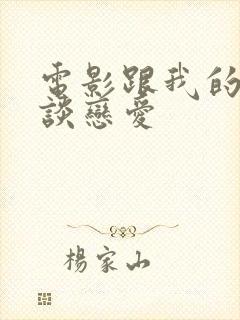 電影跟我的
談戀愛
楊家山